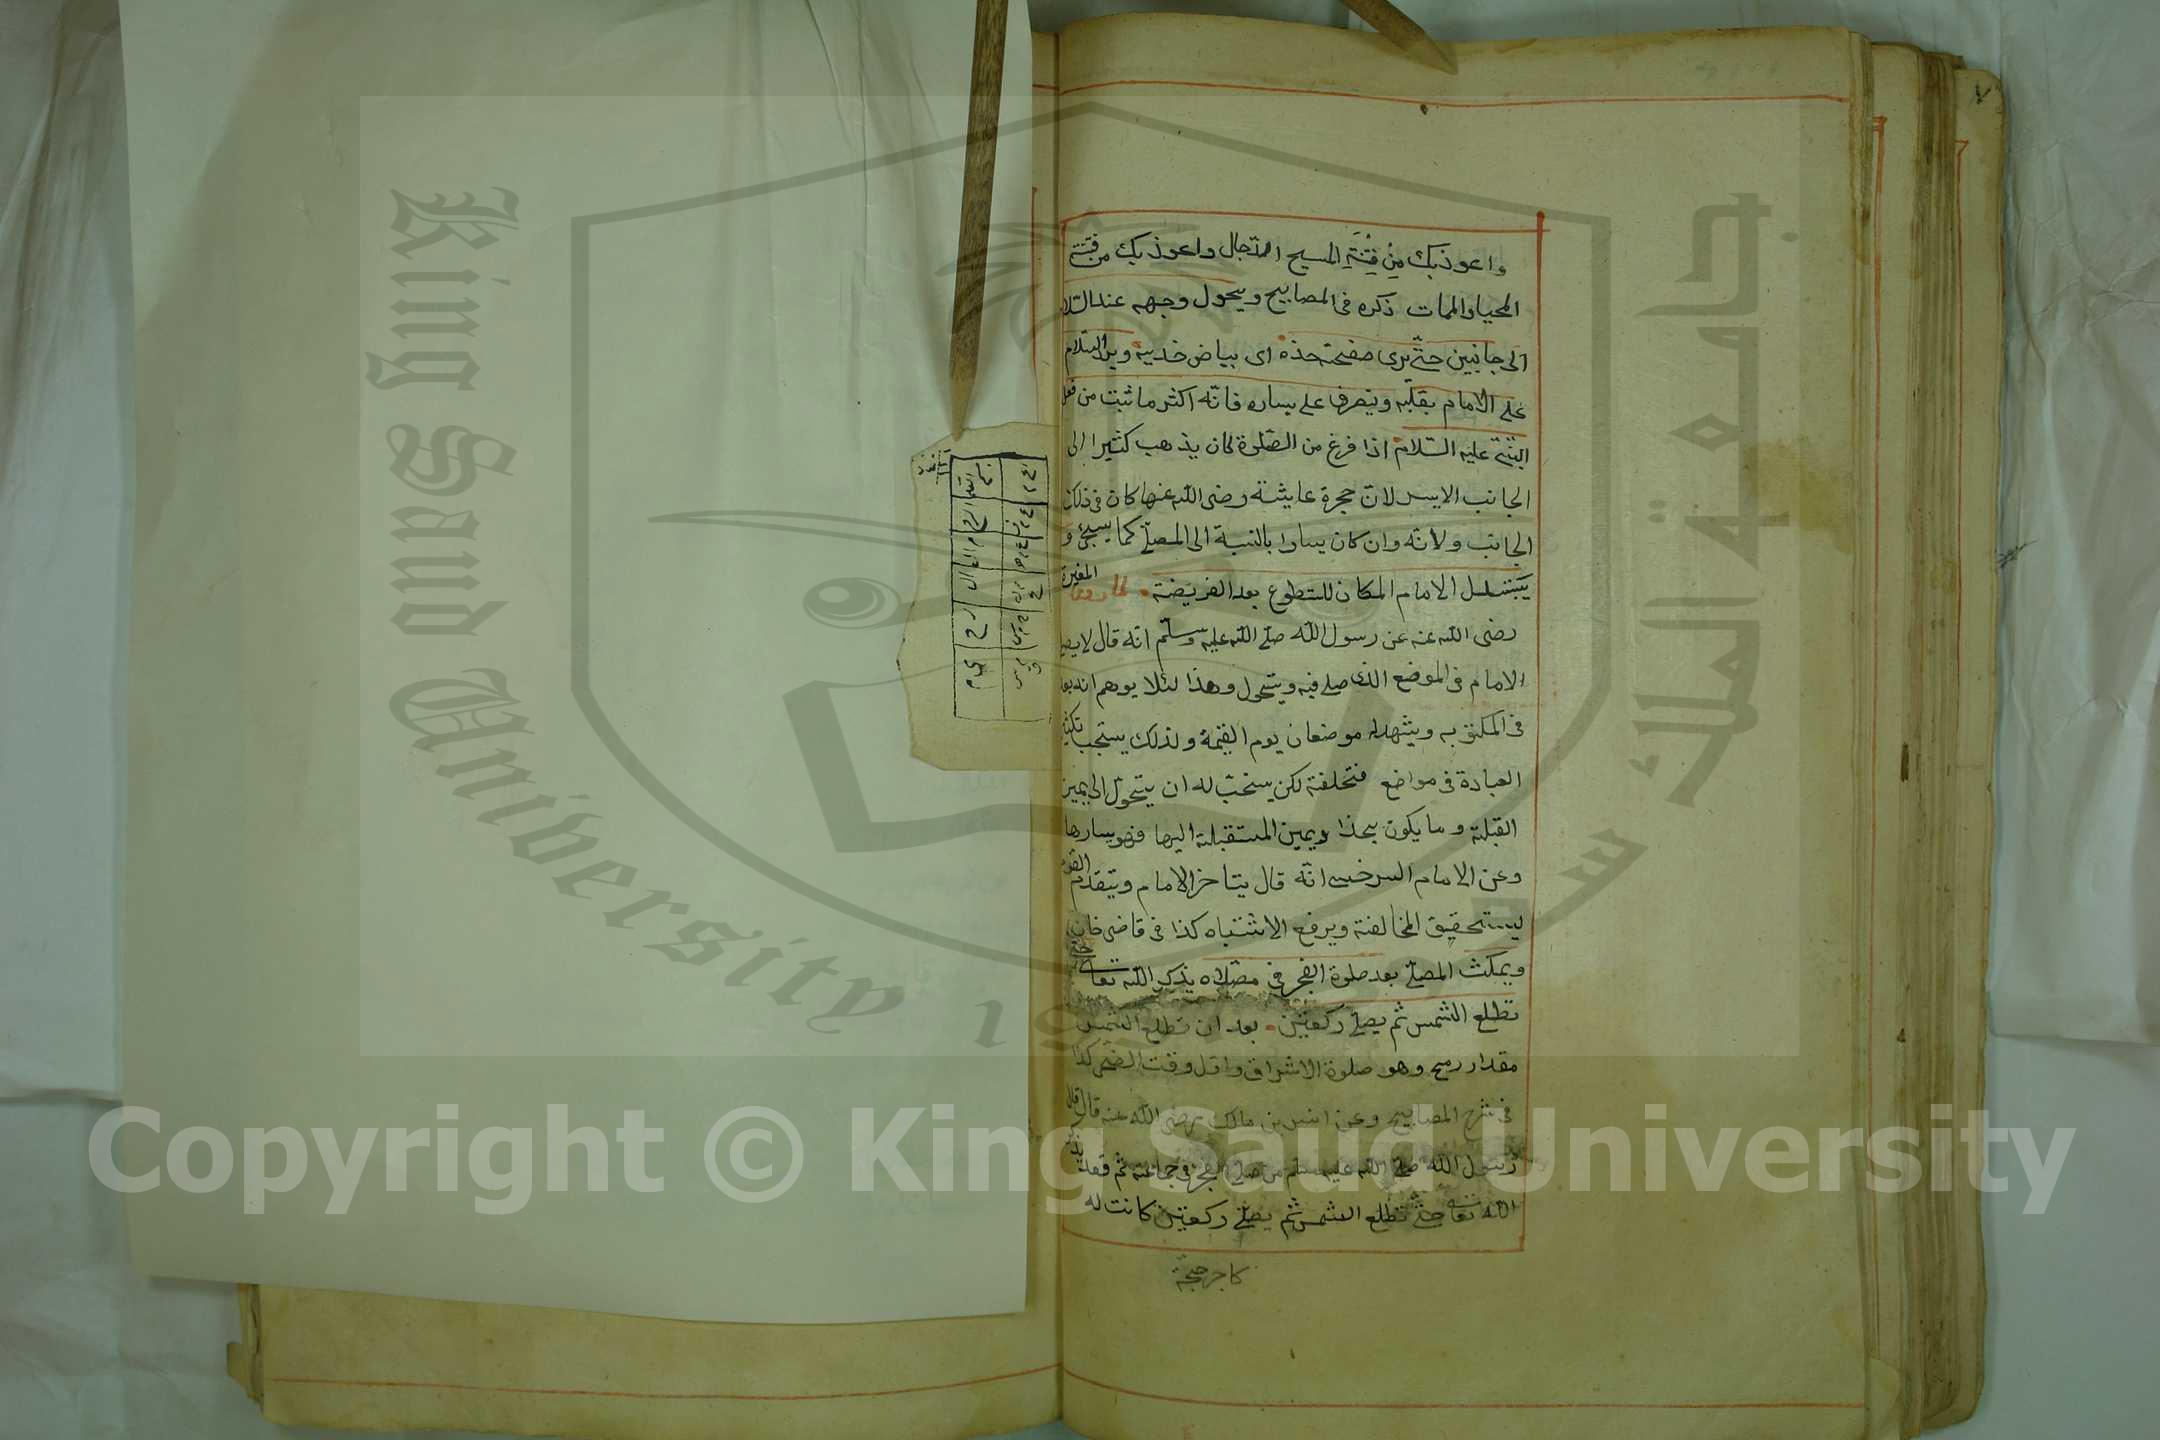 واعوذ بك مِنْ فِتْنَةِ المسيح الدّجال واعوذ بك من فتنة
المحيا والممات ذكره فى المصابيح ويحول وجهه عند السّلا
الى جانبين حتّى يرى صفحة خذه اى بياض خديه وير السّلام
على الامام بقلبه وينصرف على يساره فانّه اكثر ما ثبت من فعل
النبىّ عليه السّلام اذا فرغ من الصّلوة كان يذهب كثيرا الى
الجانب الايسر لانّ حجرة عايشة رضى اللّه عنها كان فى ذلك
الجانب ولانّه وان كان يسارا بالنسبة الى المصلّى كما يسجئ و
يتبتدل الامام المكان للتطوع بعد الفريضة لما روى المغيرة
رضى اللّه عنه عن رسول اللّه صلّى اللّه عليه وسلّم انّه قال لا يصلى
الامام فى الموضع الذى صلى فيه ويتحول وهذا لئلا يوهم انه بعد
فى المكتوبه ويشهد له موضعان يوم القيمة ولذلك يستحب تكثير
العبادة فى مواضع مختلفة لكن يستحبّ له ان يتحوّل الى يمين
القبلة وما يكون بحذا ويمين المستقبلة اليها فهو يسارها
وعن الامام السرخسى انّه قال يتاخر الامام ويتقدم القوم
ليستحقيق المخالفة ويرفع الاشتباه كذا فى قاضى خان
ويمكث المصلّى بعد صلوة الفجر فى مصلاه يذكر اللّه تعالى حتّى
تطلع الشمس ثم يصلى ركعتين بعد ان تطلع الشمس
مقدار رمح وهو صلوة الاشراق واول وقت الضحى كذا
فى شرح المصابيح وعن انس بن مالك رضى اللّه عنه قال قال
رسول اللّه صلّى اللّه عليه وسلم من صلّى الفجر فى جماعة ثم قعد يذ
اللّه تعالى حتّى تطلع الشمس ثم يصلّى ركعتين كانت له
كاجر حجّة
King Saud University
جامعة الملك
Copyright © King Saud University